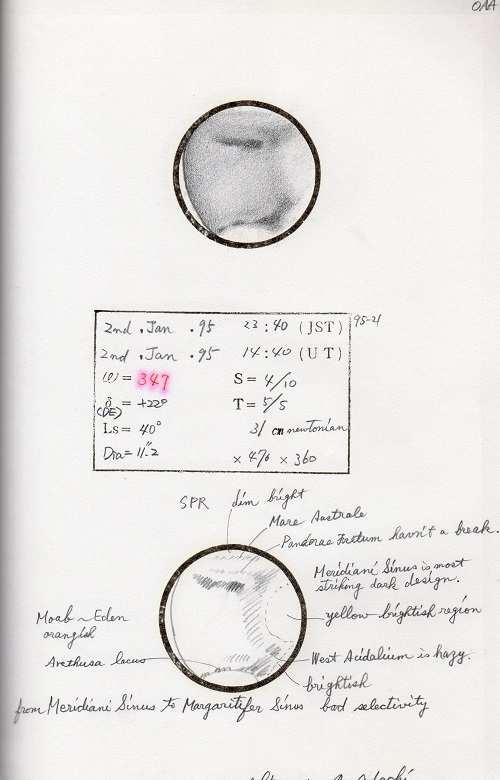 OAA
2nd . Jan . 95 23:40 (JST)
95-21
2nd . Jan . 95 14:40 (UT)
ω = 347 S = 4/10
δ = +22° T = 5/5
(DE)
Ls = 40° 31 cm newtonian
Dia = 11".2 × 470 × 360
SPR dim bright
Mare Australe
Pandorae Fretum havn't a break.
Meridiani Sinus is most
striking dark design.
yellow brightish region
Moab ~ Eden
orangish
Arethusa lacus
West Acidalium is hazy.
brightish
from Meridiani Sinus to Margaritifer Sinus bad selectivity